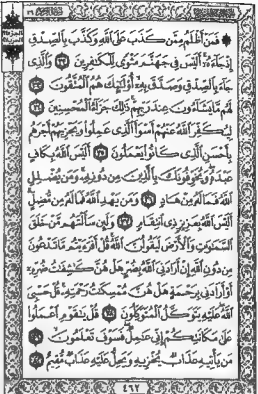 ۞ فَمَنْ أَظْلَمُ مِمَّن كَذَبَ عَلَى ٱللَّهِ وَكَذَّبَ بِٱلصِّدْقِ
إِذْ جَآءَهُۥٓ أَلَيْسَ فِى جَهَنَّمَ مَثْوًى لِّلْكَٰفِرِينَ ٣٢ وَٱلَّذِى
جَآءَ بِٱلصِّدْقِ وَصَدَّقَ بِهِۦٓ أُو۟لَٰٓئِكَ هُمُ ٱلْمُتَّقُونَ ٣٣
لَهُم مَّا يَشَآءُونَ عِندَ رَبِّهِمْ ذَٰلِكَ جَزَآءُ ٱلْمُحْسِنِينَ ٣٤
لِيُكَفِّرَ ٱللَّهُ عَنْهُمْ أَسْوَأَ ٱلَّذِى عَمِلُوا۟ وَيَجْزِيَهُمْ أَجْرَهُم
بِأَحْسَنِ ٱلَّذِى كَانُوا۟ يَعْمَلُونَ ٣٥ أَلَيْسَ ٱللَّهُ بِكَافٍ
عَبْدَهُۥ وَيُخَوِّفُونَكَ بِٱلَّذِينَ مِن دُونِهِۦ وَمَن يُضْلِلِ
ٱللَّهُ فَمَا لَهُۥ مِنْ هَادٍ ٣٦ وَمَن يَهْدِ ٱللَّهُ فَمَا لَهُۥ مِن مُّضِلٍّ
أَلَيْسَ ٱللَّهُ بِعَزِيزٍ ذِى ٱنتِقَامٍ ٣٧ وَلَئِن سَأَلْتَهُم مَّنْ خَلَقَ
ٱلسَّمَٰوَٰتِ وَٱلْأَرْضَ لَيَقُولُنَّ ٱللَّهُ قُلْ أَفَرَءَيْتُم مَّا تَدْعُونَ
مِن دُونِ ٱللَّهِ إِنْ أَرَادَنِىَ ٱللَّهُ بِضُرٍّ هَلْ هُنَّ كَٰشِفَٰتُ ضُرِّهِۦٓ
أَوْ أَرَادَنِى بِرَحْمَةٍ هَلْ هُنَّ مُمْسِكَٰتُ رَحْمَتِهِۦ قُلْ حَسْبِىَ
ٱللَّهُ عَلَيْهِ يَتَوَكَّلُ ٱلْمُتَوَكِّلُونَ ٣٨ قُلْ يَٰقَوْمِ ٱعْمَلُوا۟
عَلَىٰ مَكَانَتِكُمْ إِنِّى عَٰمِلٌ فَسَوْفَ تَعْلَمُونَ ٣٩
مَن يَأْتِيهِ عَذَابٌ يُخْزِيهِ وَيَحِلُّ عَلَيْهِ عَذَابٌ مُّقِيمٌ ٤٠
٤٦٢